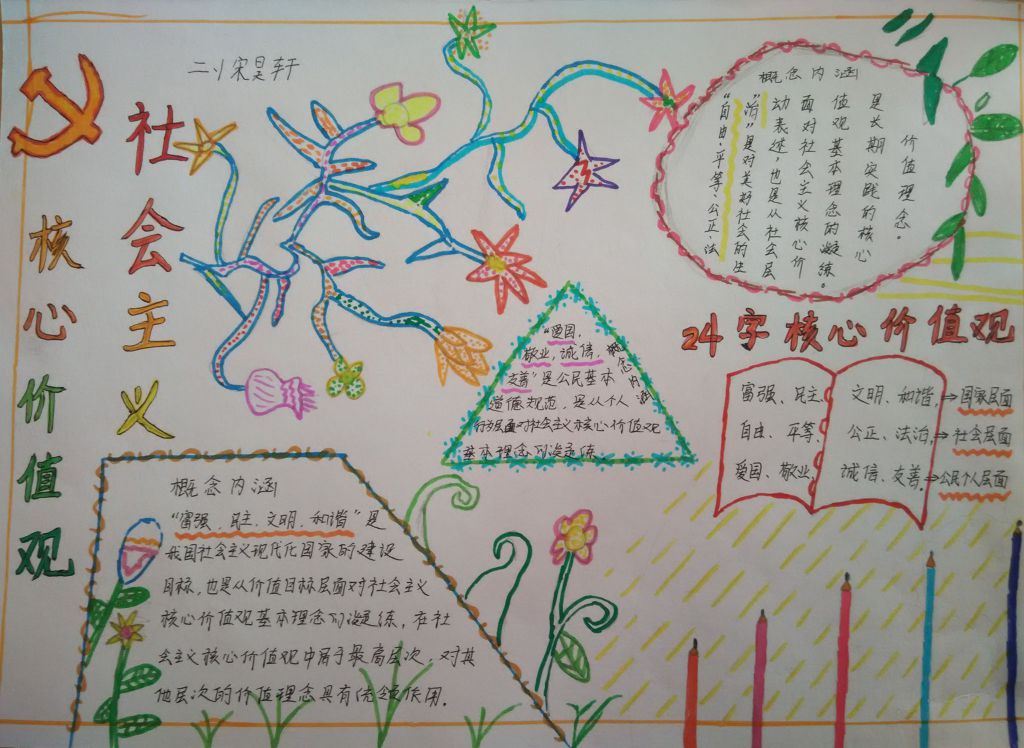 二1 宋昊轩
社会主义
核心价值观
概念内涵
"自由、平等、公正、法
治"是对美好社会的生
动表述,也是从社会层
面对社会主义核心价
值观基本理念的凝练。
是长期实践的核心
价值理念。
"爱国、
敬业,诚信,
友善"是公民基本
道德规范,是从个人
行为层面对社会主义核心价值观
基本理念的凝练
概念内涵
24字核心价值观
富强、民主、 文明、和谐,→国家层面
自由、平等、 公正、法治,→社会层面
爱国、敬业, 诚信、友善。→公民个人层面
概念内涵
"富强、民主、文明、和谐"是
我国社会主义现代化国家的建设
目标,也是从价值目标层面对社会主义
核心价值观基本理念的凝练,在社
会主义核心价值观中居于最高层次,对其
他层次的价值理念具有统领作用。